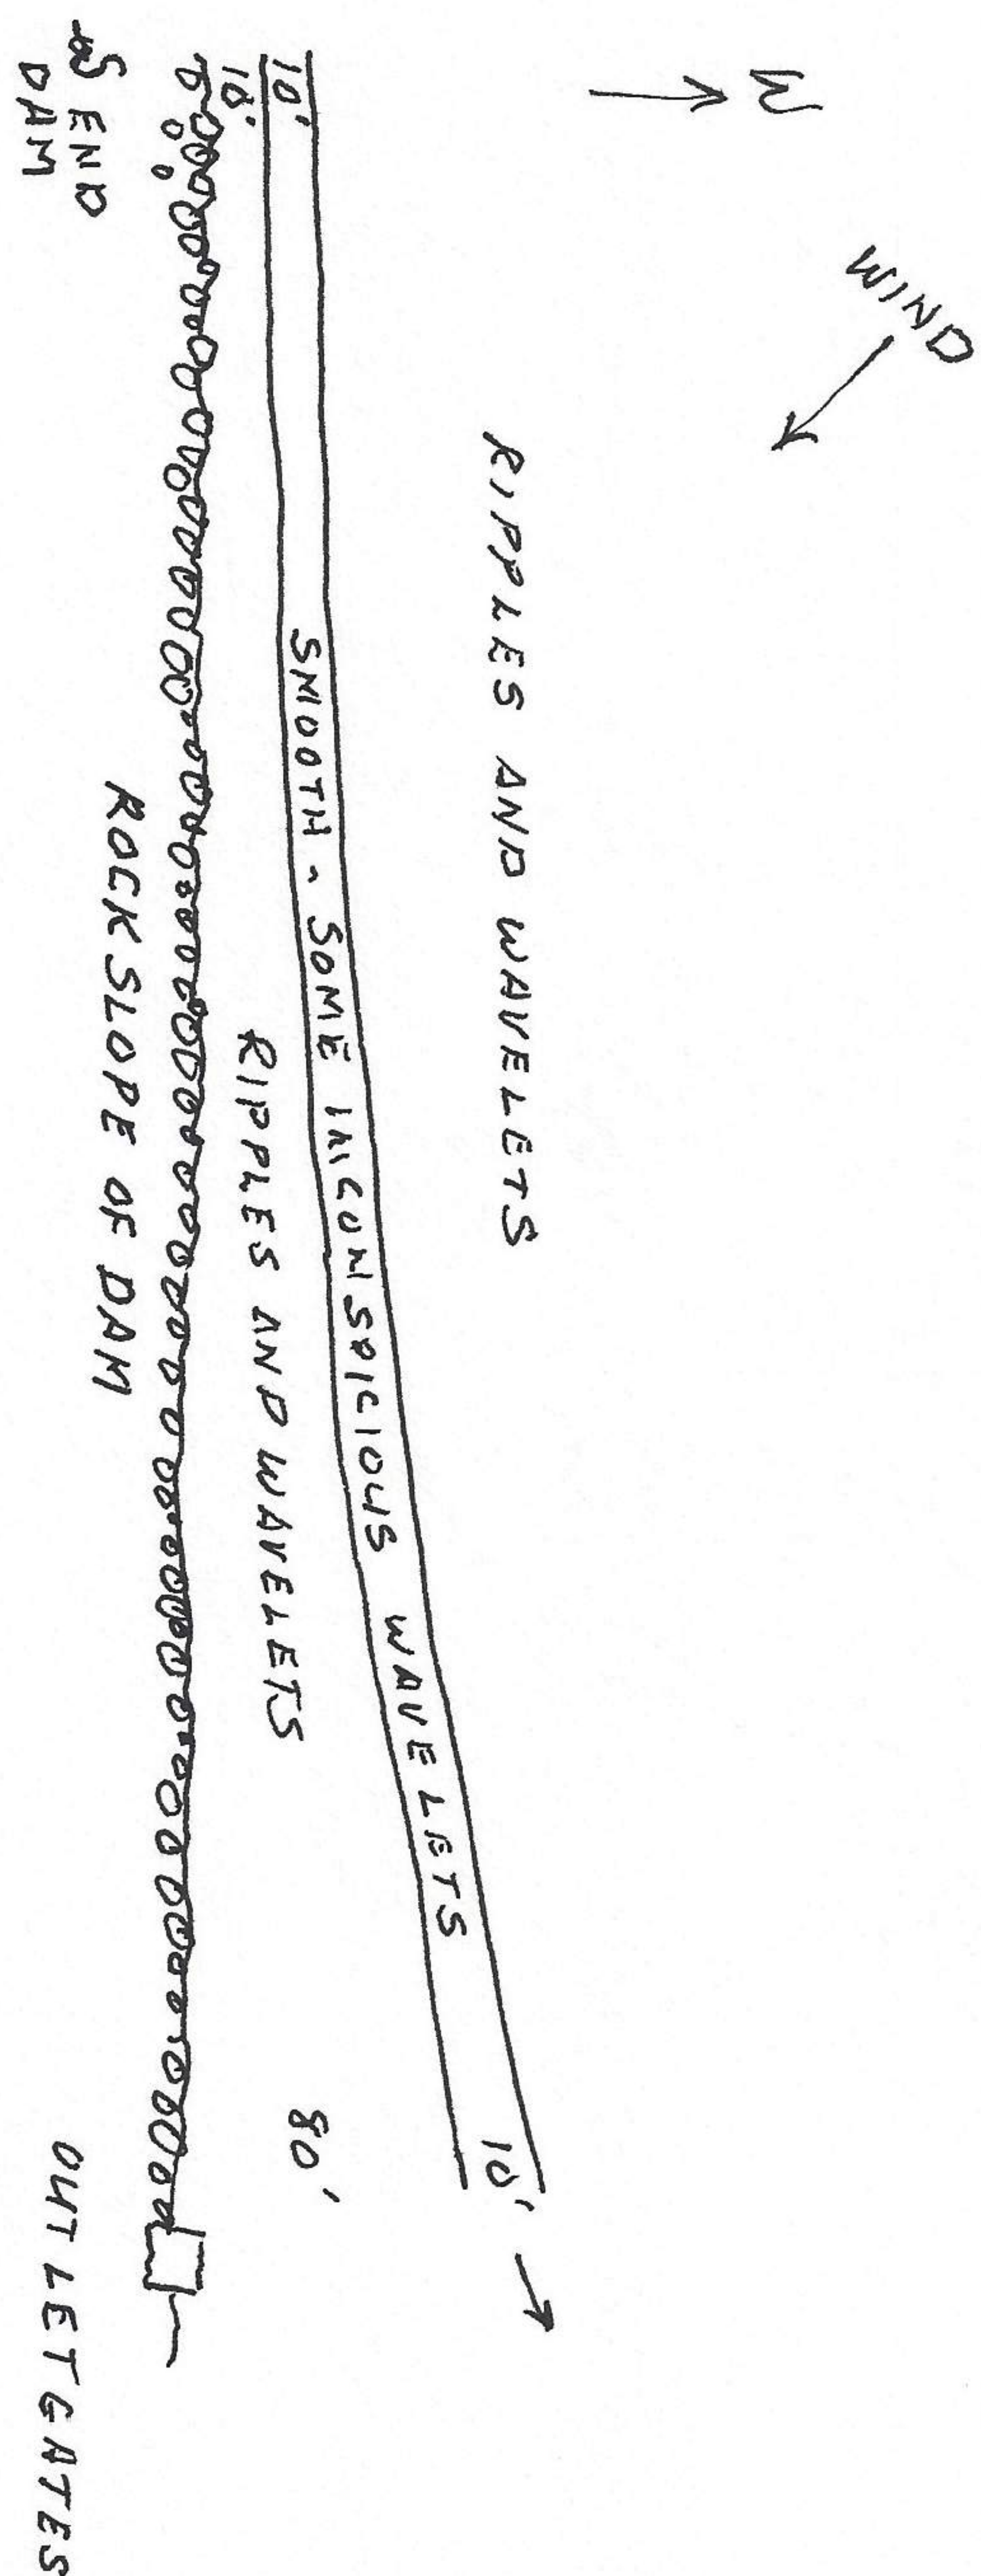 W
WIND
RIPPLES AND WAVELETS
10' SMOOTH - SOME INCONSPICIOUS WAVELETS 10'
10' RIPPLES AND WAVELETS 80'
ROCK SLOPE OF DAM
S END
DAM
OUTLET GATES